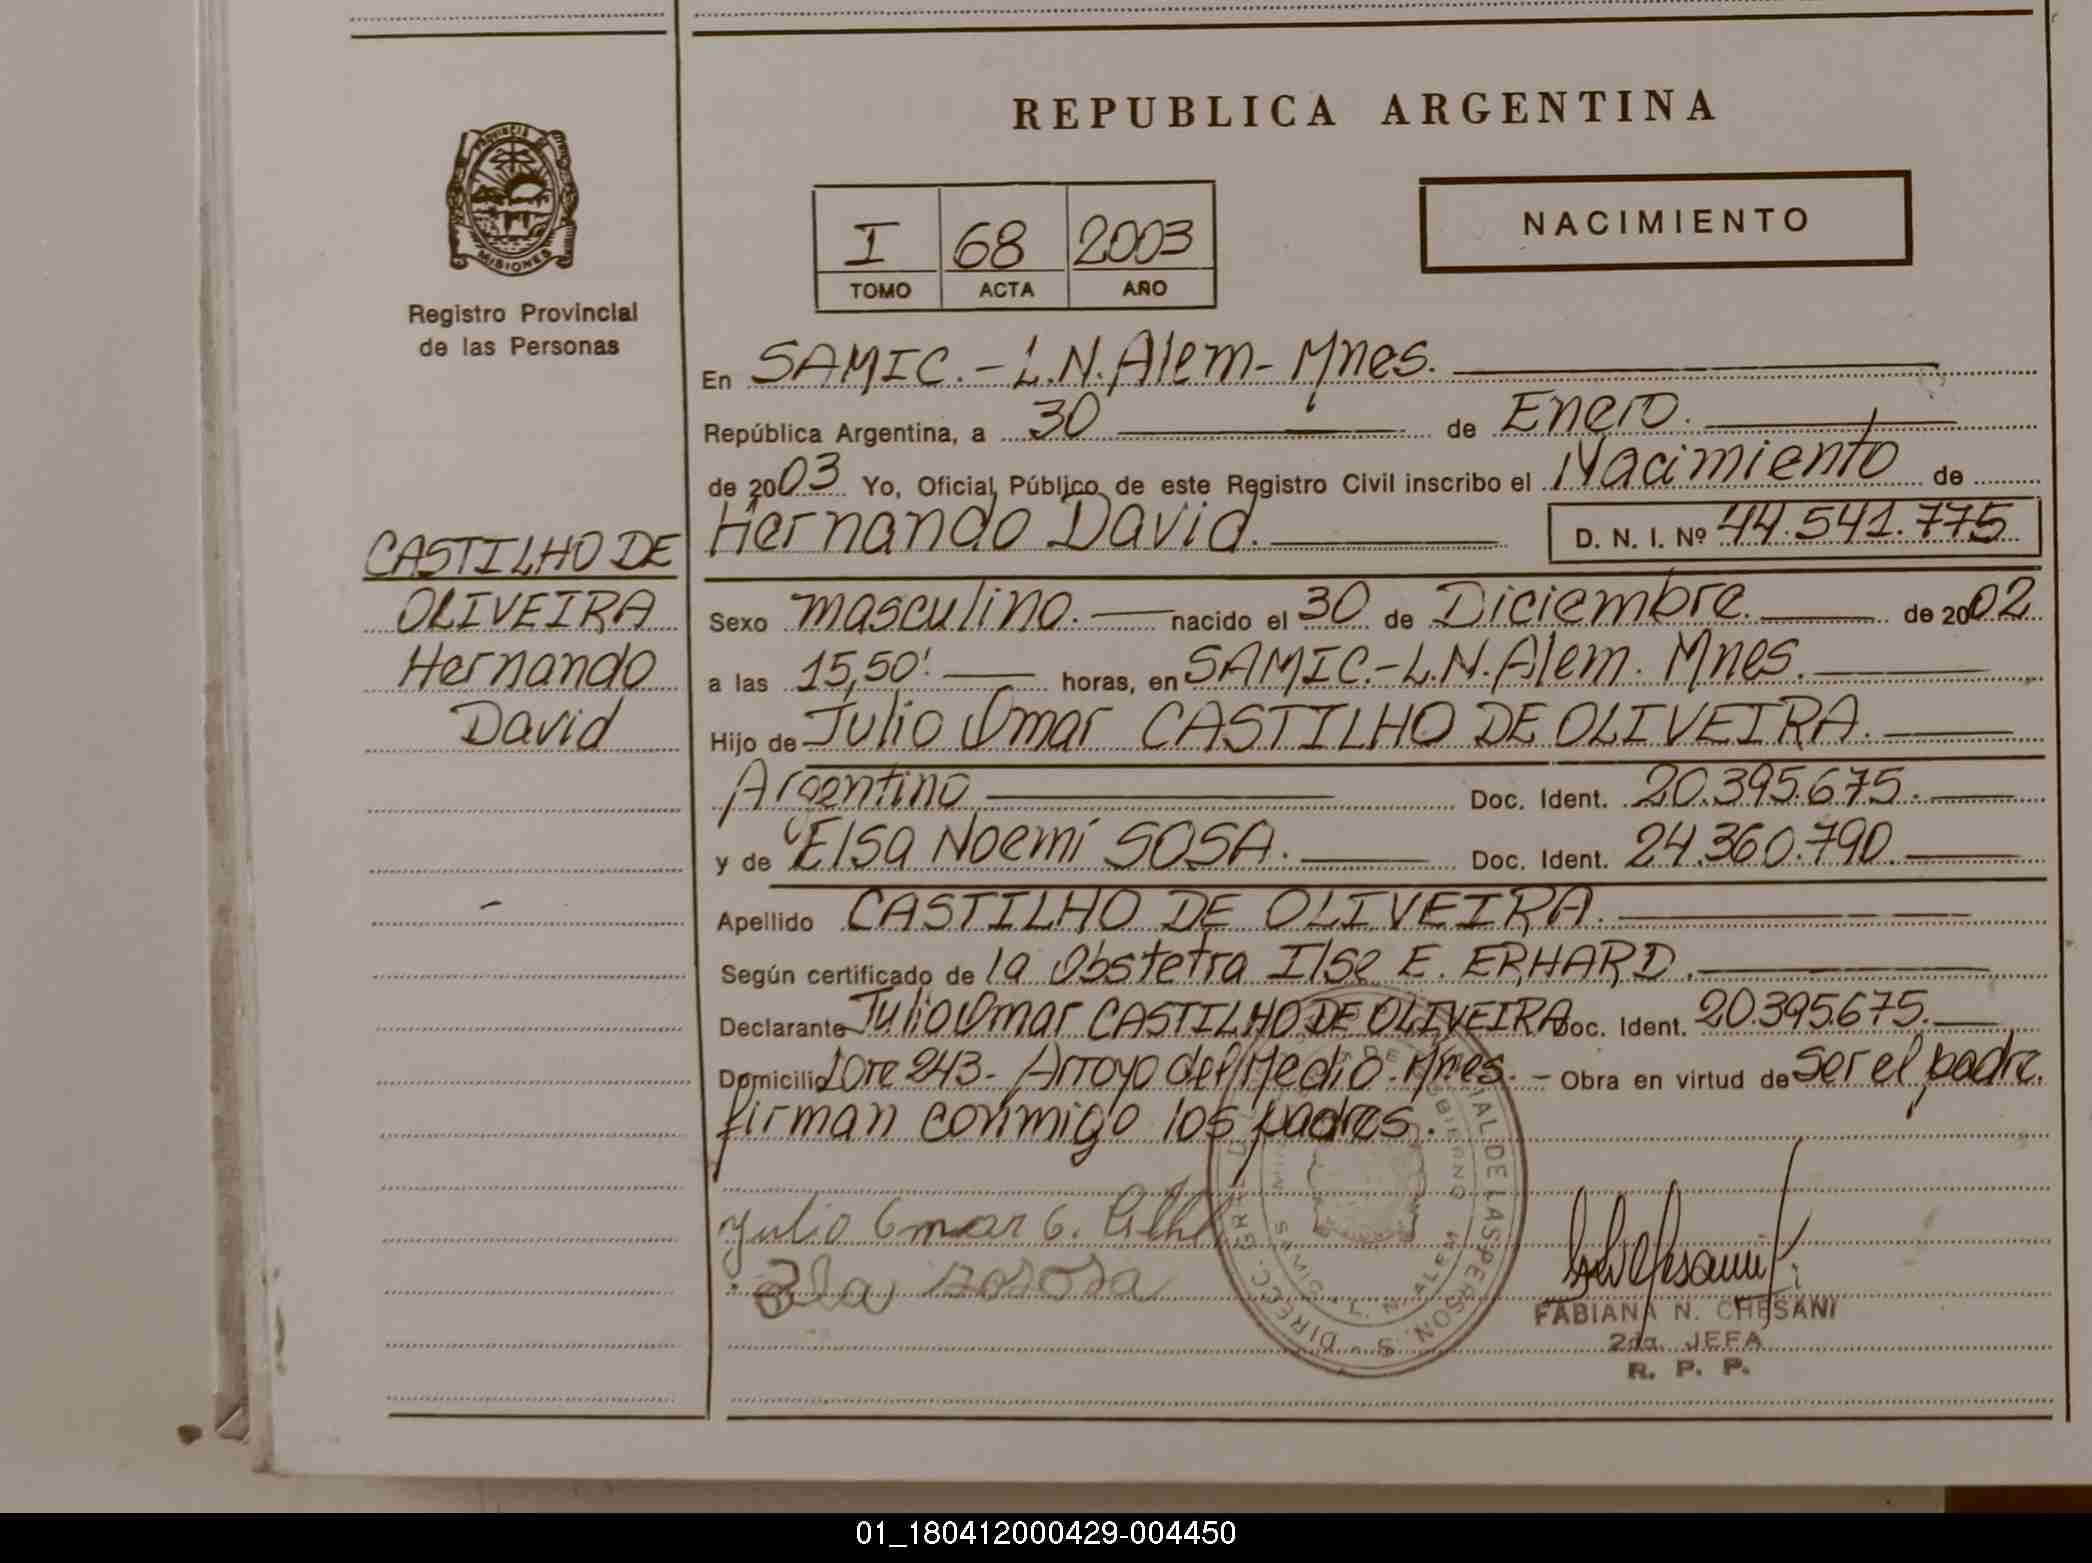 REPUBLICA ARGENTINA
Provincia
MISIONES
Registro Provincial
de las Personas
I 68 2003
TOMO ACTA AÑO
NACIMIENTO
En SAMIC.-L.N.Alem-Mnes.
República Argentina, a 30 de Enero.
de 2003 Yo, Oficial Público de este Registro Civil inscribo el Nacimiento de
Hernando David. D. N. I. Nº 44.541.775
CASTILHO DE
OLIVEIRA
Hernando
David
Sexo masculino. nacido el 30 de Diciembre. de 2002
a las 15,50' horas, en SAMIC.-L.N.Alem. Mnes.
Hijo de Julio Omar CASTILHO DE OLIVEIRA.
Argentino Doc. Ident. 20.395.675.
y de Elsa Noemí SOSA. Doc. Ident. 24.360.790.
Apellido CASTILHO DE OLIVEIRA.
Según certificado de la Obstetra Ilse E. ERHARD.
Declarante Julio Omar CASTILHO DE OLIVEIRA Doc. Ident. 20.395.675.
Domicilio Lote 243- Arroyo del Medio-Mnes. - Obra en virtud de ser el padre.
firman conmigo los padres.
Julio Omar C.
FABIANA N. CHESANI
2da. JEFA
R. P. P.
L. N. ALEM
01_180412000429-004450